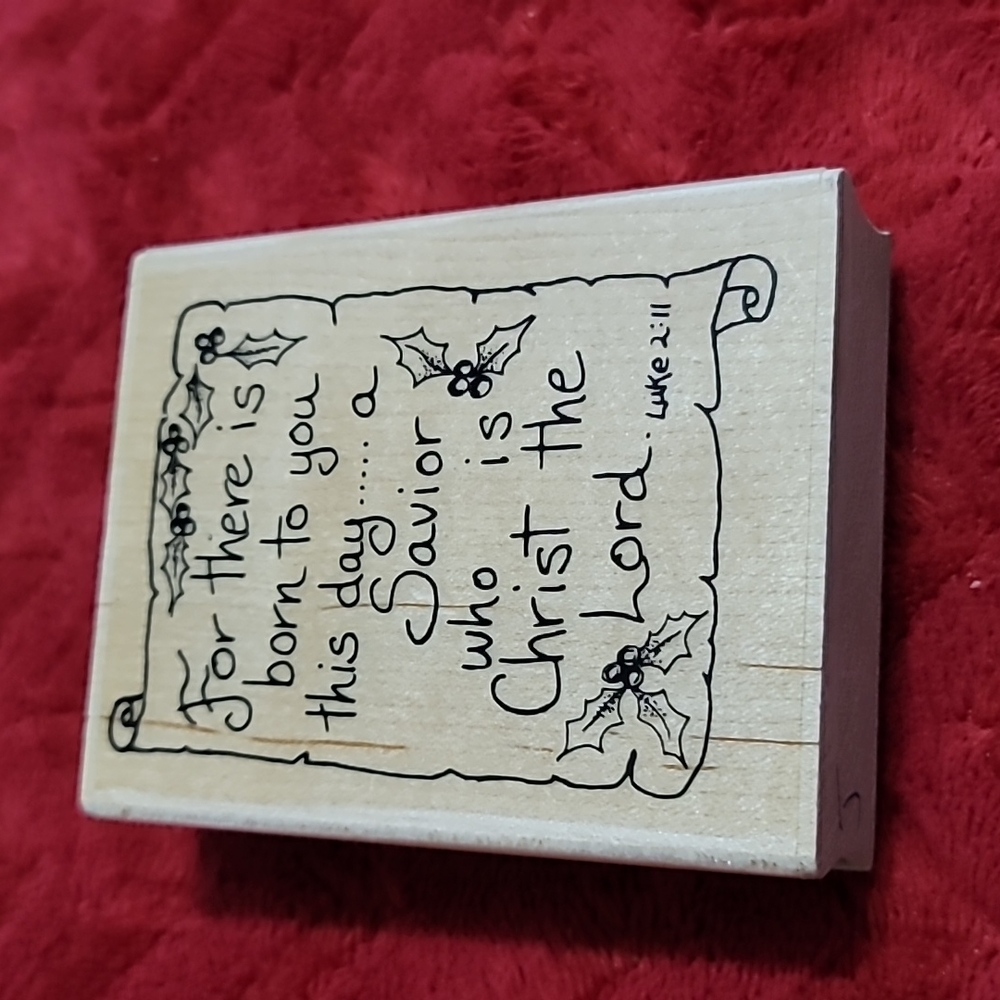 For there is
born to you
this day.....a
Savior
who is
Christ the
Lord. Luke 2:11